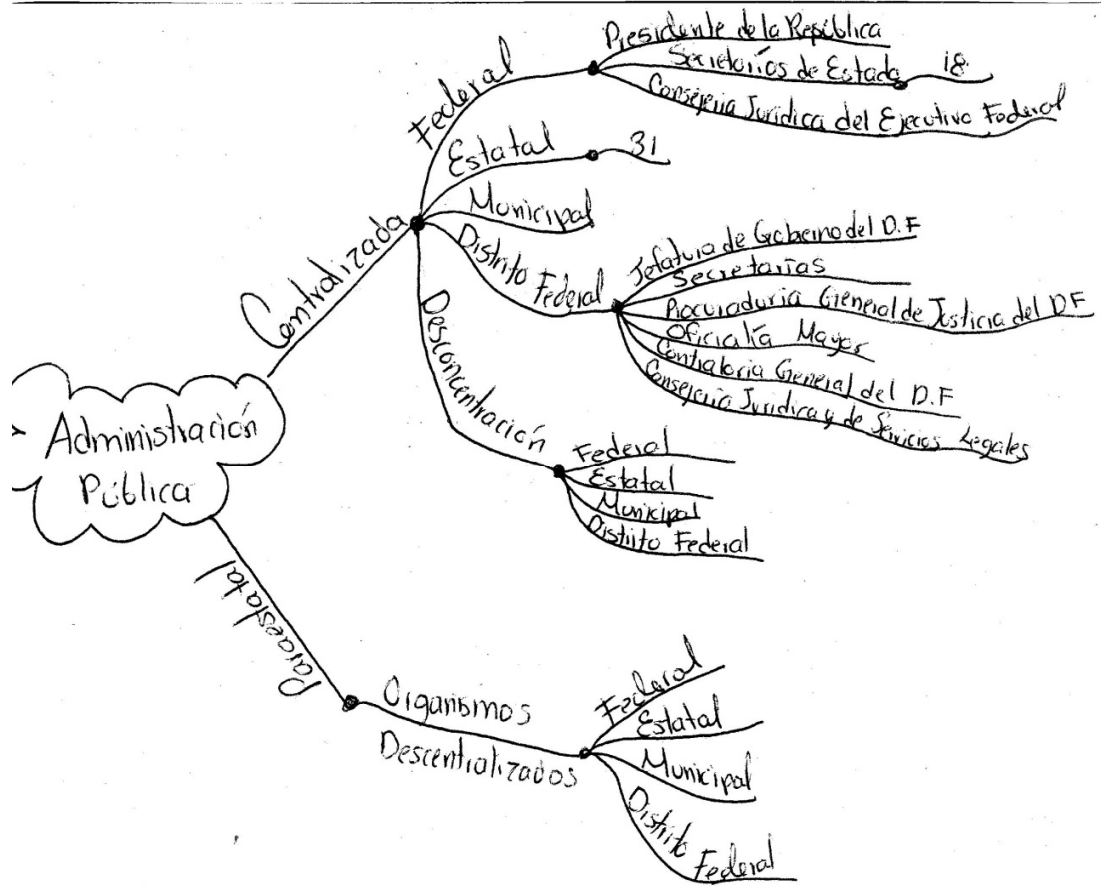 Administración
Pública
Centralizada
Federal
Presidente de la República
Secretarios de Estado
18
Consejeria Jurídica del Ejecutivo Federal
Estatal
31
Municipal
Distrito Federal
Jefatura de Gobierno del D.F
Secretarías
Procuraduria General de Justicia del DF
Oficialía Mayor
Contraloria General del D.F
Consejeria Juridica y de Servicios Legales
Desconcentración
Federal
Estatal
Municipal
Distrito Federal
Paraestatal
Organismos
Descentralizados
Federal
Estatal
Municipal
Distrito
Federal